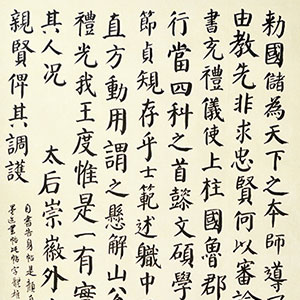 勅國儲為天下之本師導乃
由教先非求忠賢何以審諭
書充禮儀使上柱國魯郡
行當四科之首懿文碩學
節貞規存乎士範述職中
直方動用謂之懸解山公
禮光我王度惟是一有實
其人況 太后崇徽外
親賢俾其調護
自書告身帖是顏